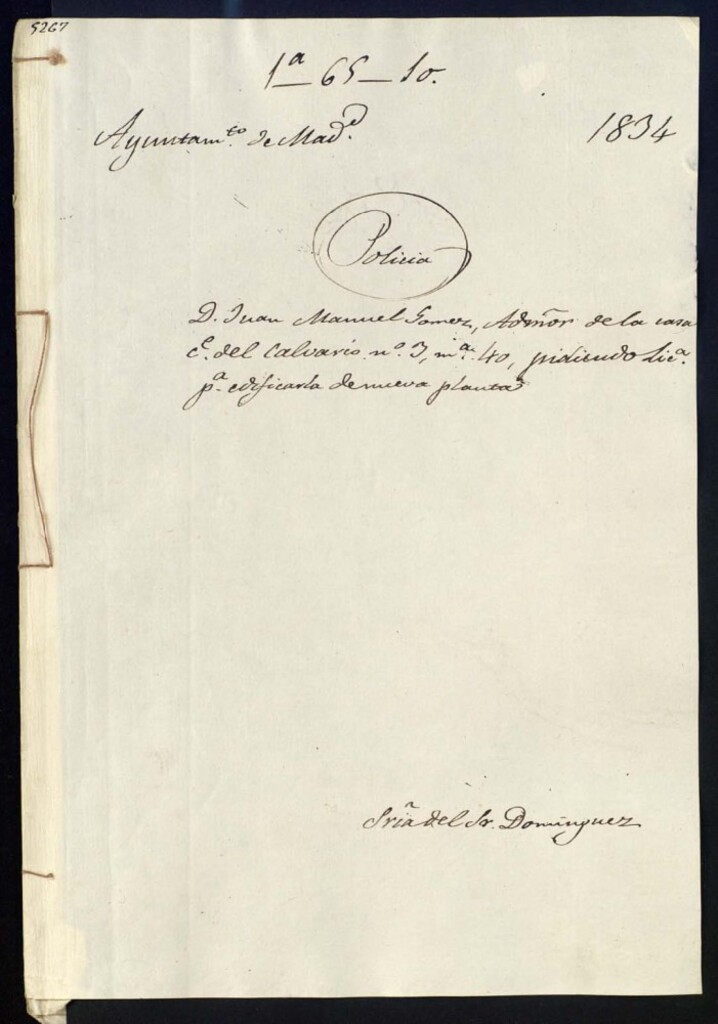 5267
1ª — 65 — 10.
Ayuntam.to de Mad.d
1834
Policia
D. Juan Manuel Gomez, Admõr de la casa
c.e del Calvario nº. 3, m.ª 40, pidiendo Lic.ª
p.ª edificarla de nueva planta
Sríª del Sr. Dominguez